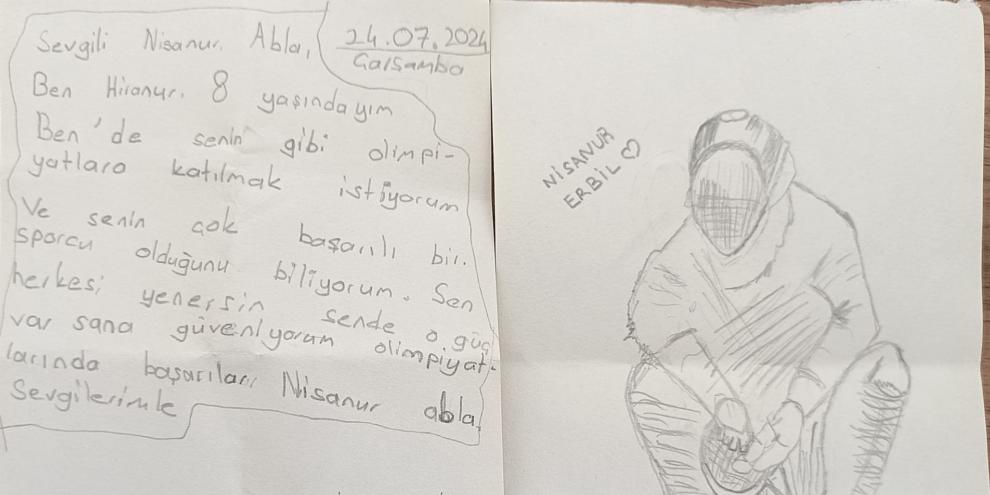 Sevgili Nisanur. Abla,
24.07.2024
Çarşamba
Ben Hiranur. 8 yaşındayım
Ben'de senin gibi olimpi-
yatlara katılmak istiyorum
Ve senin çok başarılı bir.
sporcu olduğunu biliyorum. Sen
herkesi yenersin sende o güç
var sana güveniyorum olimpiyat-
larında başarılar Nisanur abla
Sevgilerimle
NİSANUR
ERBİL